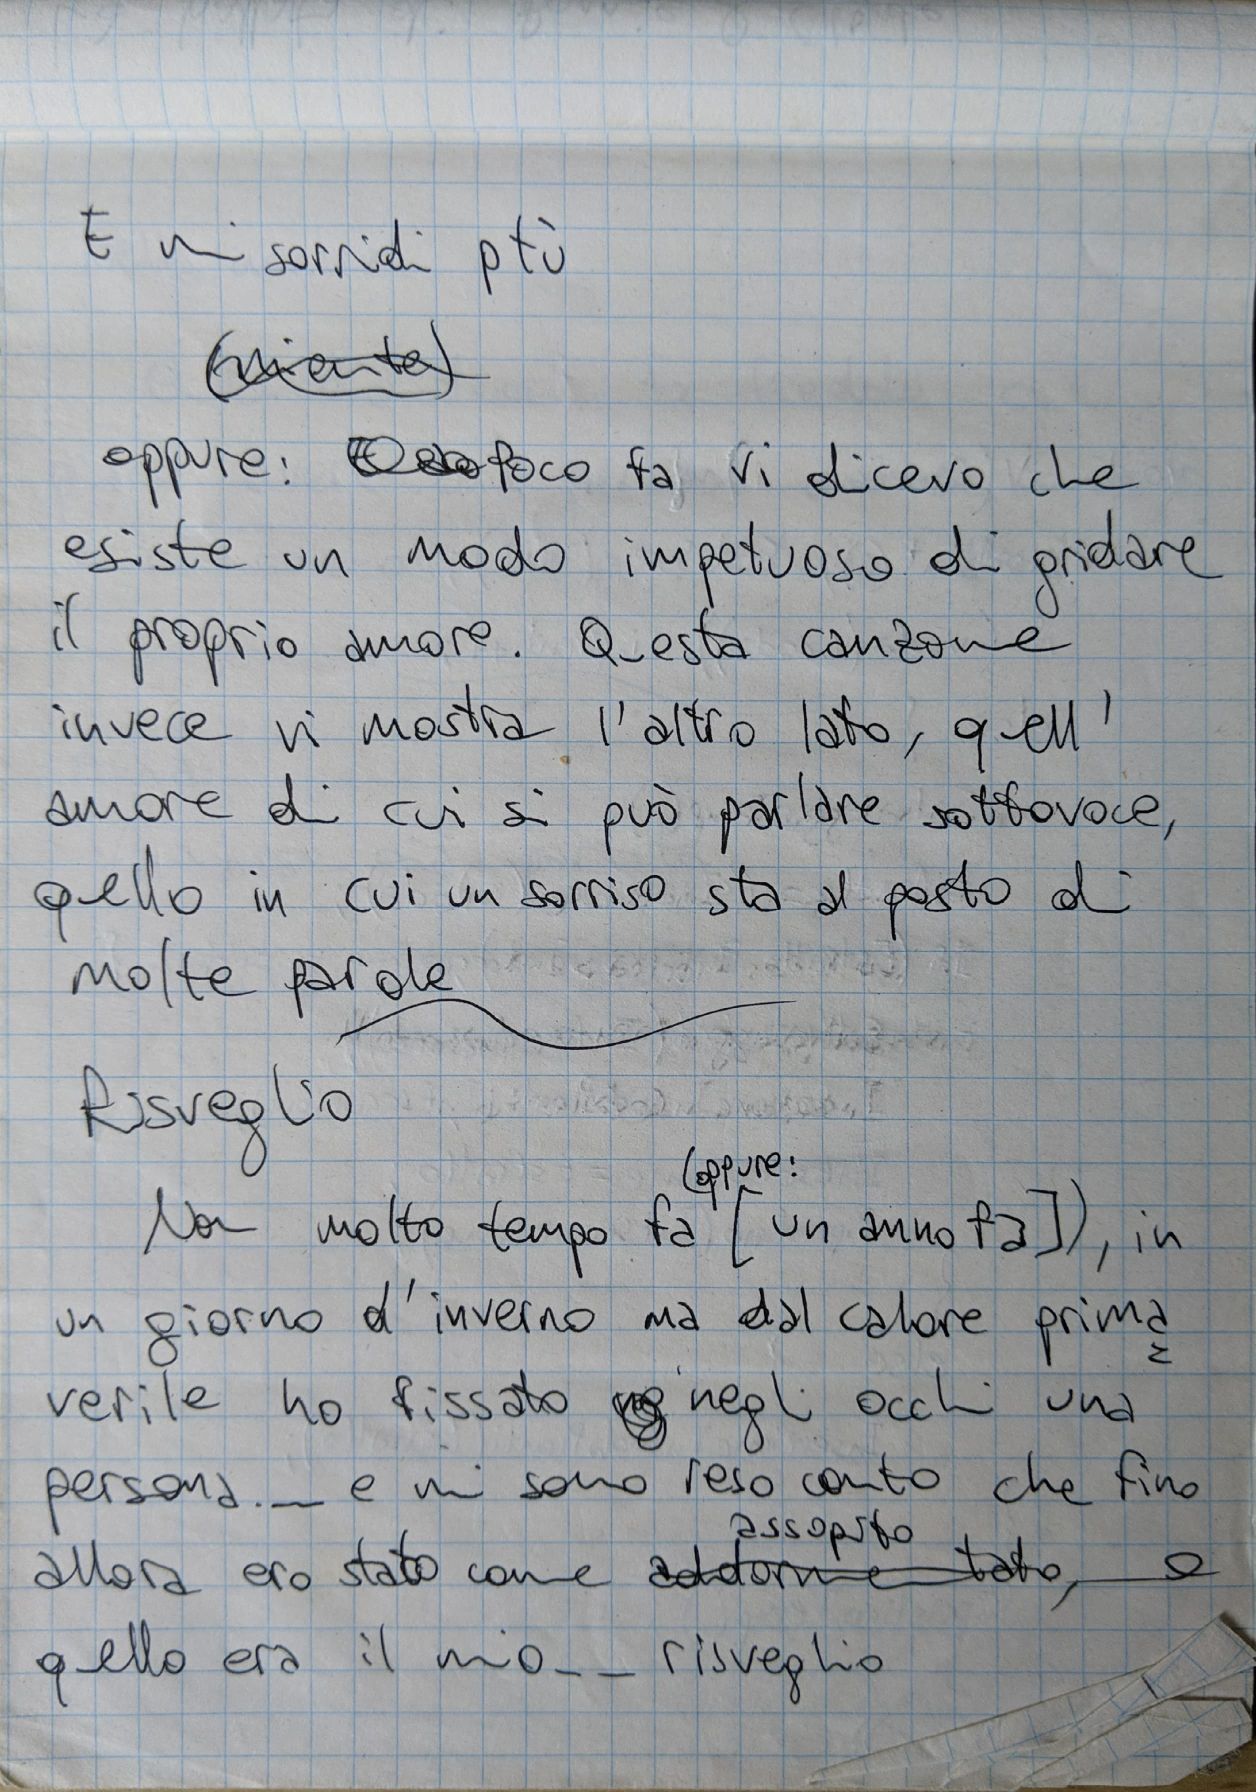 E mi sorridi più
(niente)
oppure: Poco fa vi dicevo che
esiste un modo impetuoso di gridare
il proprio amore. Questa canzone
invece vi mostra l'altro lato, quell'
amore di cui si può parlare sottovoce,
quello in cui un sorriso sta al posto di
molte parole
Risveglio
(oppure:
Non molto tempo fa [un anno fa]), in
un giorno d'inverno ma dal calore prima
verile ho fissato negli occhi una
persona... e mi sono reso conto che fino
assopito
allora ero stato come addormentato, e
quello era il mio... risveglio